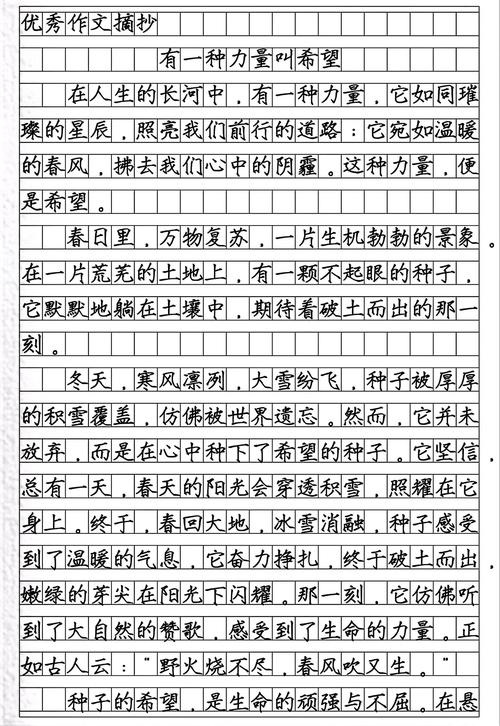 优秀作文摘抄
有一种力量叫希望
在人生的长河中，有一种力量，它如同璀
璨的星辰，照亮我们前行的道路；它宛如温暖
的春风，拂去我们心中的阴霾。这种力量，便
是希望。
春日里，万物复苏，一片生机勃勃的景象。
在一片荒芜的土地上，有一颗不起眼的种子，
它默默地躺在土壤中，期待着破土而出的那一
刻。
冬天，寒风凛冽，大雪纷飞，种子被厚厚
的积雪覆盖，仿佛被世界遗忘。然而，它并未
放弃，而是在心中种下了希望的种子。它坚信，
总有一天，春天的阳光会穿透积雪，照耀在它
身上。终于，春回大地，冰雪消融，种子感受
到了温暖的气息，它奋力挣扎，终于破土而出，
嫩绿的芽尖在阳光下闪耀。那一刻，它仿佛听
到了大自然的赞歌，感受到了生命的力量。正
如古人云："野火烧不尽，春风吹又生。"
种子的希望，是生命的顽强与不屈。在悬